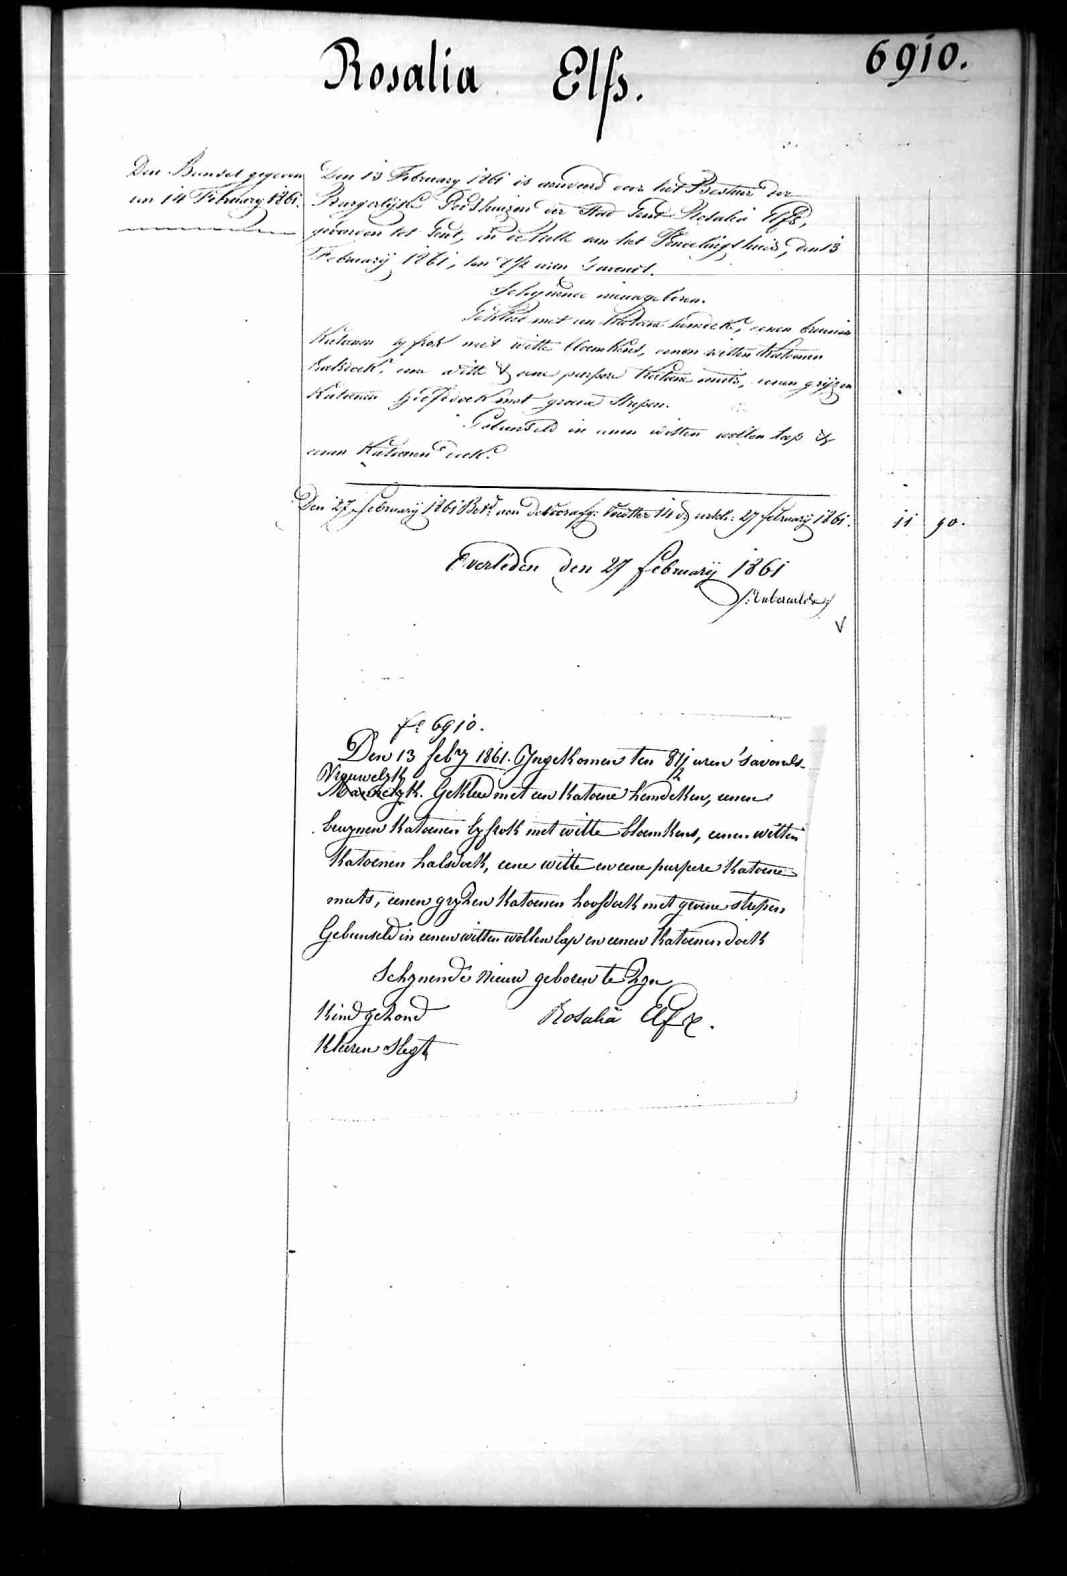 6910.
Rosalia Elfs.
Den Bundel gegeven
den 14 February 1861.
Den 13 February 1861 is aanveerd door het Bestuur der
Burgerlyke Godshuizen der Stad Gend Rosalia Elfs,
gevonden tot Gent, in de Rolle van het Vondelingshuis, den 13
February 1861, ten 8½ uren 's avonds.
Schynende nieuwgeboren.
Gekleed met een katoene hemdeke, eenen bruinen
katoenen lyfrok met witte bloemkens, eenen witten katoenen
halsdoek, eene witte & eene purpere katoene muts, eenen gryzen
katoenen hoofddoek met groene strepen.
Gebunseld in eenen witten wollen lap &
eenen katoenen doek.
Den 27 February 1861 Bet. aan voedster 14 d. 27 february 1861. 11 90.
Overleden den 27 february 1861
f° 6910.
Den 13 feb.y 1861. Ingekomen ten 8 1/2 uren 's avonds
Vrouwelyk
Mannelyk. Gekleed met een katoene hemdeken, eenen
bruynen katoenen lyfrok met witte bloemkens, eenen witten
katoenen halsdoek, eene witte en eene purpere katoene
muts, eenen gryzen katoenen hoofdoek met groene strepen
Gebunseld in eenen witten wollen lap en eenen katoenen doek
Schynende nieuw geboren te zyn
Kind gezond Rosalia Elfs.
Kleeren slegt